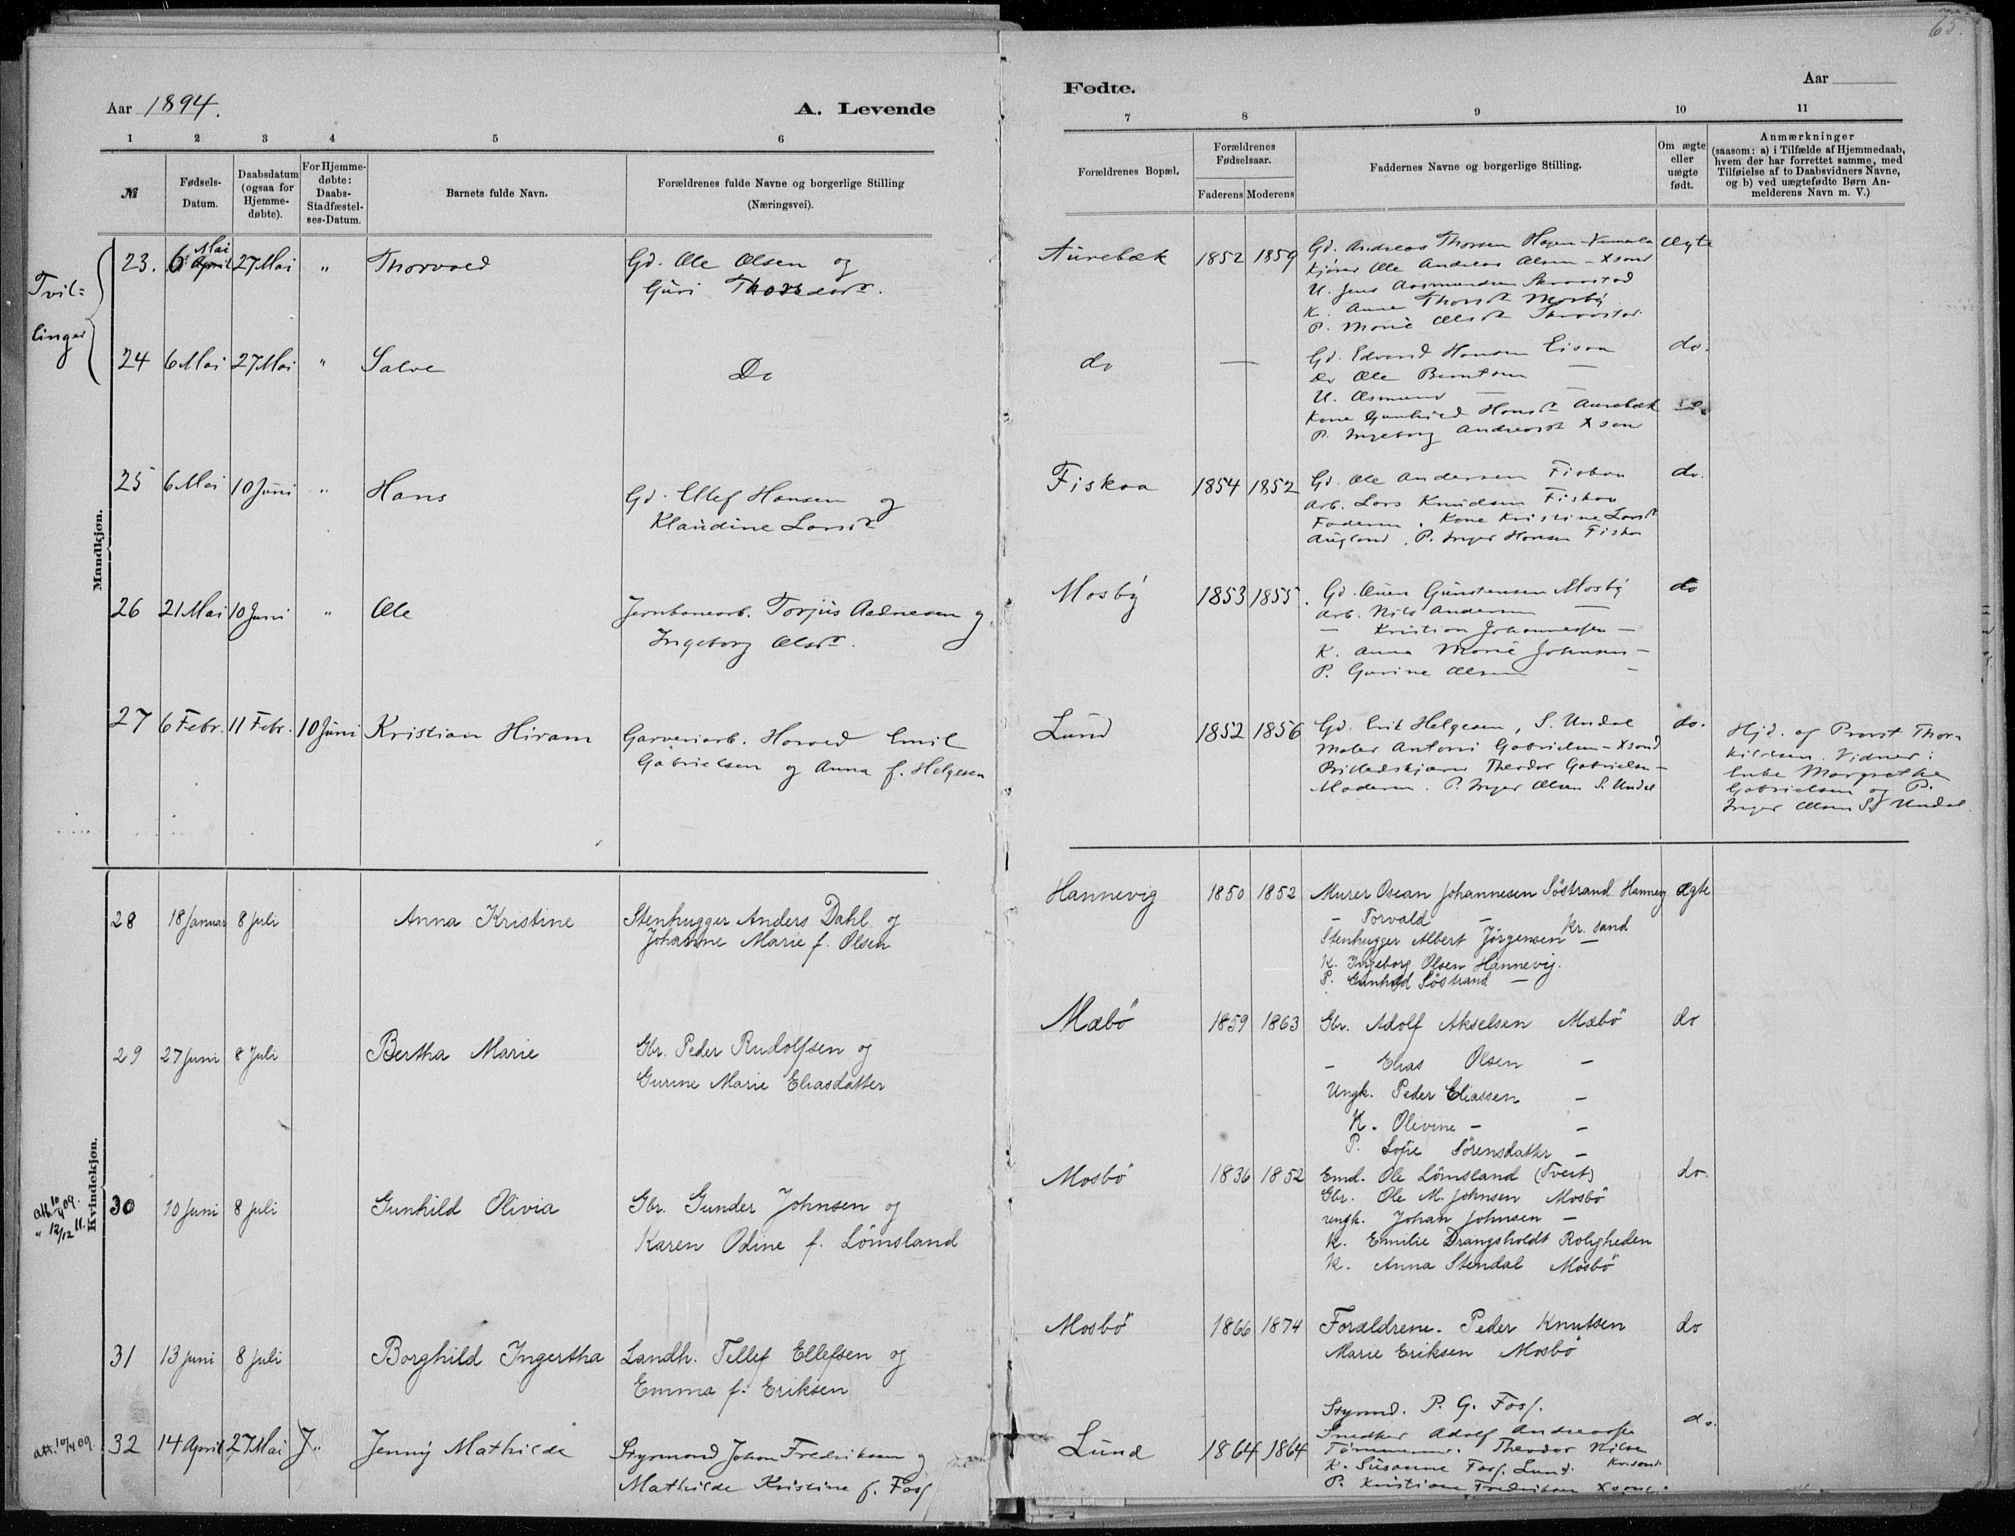 65.
Aar 1894.
A. Levende
Fødte.
Aar
1 2 3 4 5 6
7 8 9 10 11
№
Fødsels-Datum.
Daabsdatum (ogsaa for Hjemme-døbte).
For Hjemme-døbte: Daabs-Stadfæstel-ses-Datum.
Barnets fulde Navn.
Forældrenes fulde Navne og borgerlige Stilling (Næringsvei).
Forældrenes Bopæl.
Forældrenes Fødselsaar.
Faderens Moderens
Faddernes Navne og borgerlige Stilling.
Om ægte eller uægte født.
Anmærkninger (saasom: a) i Tilfælde af Hjemmedaab, hvem der har forrettet samme, med Tilføielse af to Daabsvidners Navne, og b) ved uægtefødte Børn Anmelderens Navn m. V.)
Mandkjøn.
Tvil-
linger
23. 6 April Mai 27 Mai " Thorvald
Gd. Ole Olsen og
Guri Thorsdatr.
Aurebæk 1852 1859
Gd. Andreas Thorsen Hagen
Kjører Ole Andreas Olsen - Xsand
U. Jens Aasmundsen Skraastad
K. Anna Thorsdt Mosby
P. Marie Olsdt Skraastad
Ægte
24 6 Mai 27 Mai " Salve
Do
do —
Gd. Edvard Hansen Eisaa
Do Ole Berntsen —
U. Osmund —
Kone Gunhild Hansdt Aurebæk
P. Ingeborg Andreasdt Xsand
do.
25 6 Mai 10 Juni " Hans
Gd. Ellef Hansen og
Klaudine Larsdtr
Fiskaa 1854 1852
Gd. Ole Andersen Fiskaa
Arb. Lars Knudsen Fiskaa
Faderen. Kone Kristine Larsdt
Augland, P. Inger Hansen Fiskaa
do.
26 21 Mai 10 Juni " Ole
Jernbanearb. Torjus Aadnesen og
Ingeborg Olsdtr.
Mosby 1853 1855.
Gd. Ouen Gunstensen Mosby
Arb. Nils Andersen —
— Kristian Johannessen —
K. Anna Marie Johnsen —
P. Gurine Olsen —
do
27 6 Febr. 11 Febr. 10 Juni Kristian Hiram
Garveriarb. Harald Emil
Gabrielsen og Anna f. Helgesen
Lund 1852 1856
Gd. Erik Helgesen, S. Undal
Maler Antoni Gabrielsen - Xsand
Theodor Gabrielsen —
Moderen. P. Inger Olsen S. Undal
do.
Hjd. af Provst Thor-
kildsen. Vidner:
Enke Margrethe
Gabrielsen og P.
Inger Olsen S. Undal
Kvindekjøn.
28 18 Januar 8 Juli Anna Kristine
Stenhugger Anders Dahl og
Johanne Marie f. Olsen
Hannevig 1850 1852
Murer Oscan Johannesen Søstrand Hannevig
— Torvald —
Stenhugger Albert Jörgensen Kr.sand
K. Ingeborg Olsen Hannevig.
P. Gunhild Søstrand —
ægte
29 27 Juni 8 Juli Bertha Marie
Gbr. Peder Rudolfsen og
Gurine Marie Eliasdatter
Mæbö 1859 1863
Gbr. Adolf Akselsen Mæbö
— Elias Olsen —
Ungk. Peder Eliassen —
K. Olivine — —
P. Sofie Sörensdatter —
do
att. 10/4 09.
" 12/12 11.
30 10 Juni 8 Juli Gunhild Olivia
Gbr. Gunder Johnsen og
Karen Odine f. Lömsland
Mosbö 1836 1852
Emd. Ole Lömsland (Tveit)
Gbr. Ole M. Johnsen Mosbö
ungk. Johan Johnsen —
K. Emilie Drangsholdt Roligheden
K. Anna Stendal Mosbö
do.
31 13 Juni 8 Juli Borghild Ingertha
Landh. Tellef Ellefsen og
Emma f. Eriksen
Mosbö 1866 1874
Forældrene. Peder Knutsen
Marie Eriksen Mosbö
do
att. 10/4 09
32 14 April 27 Mai J. Jenny Mathilde
Styrmand Johan Fredriksen og
Mathilde Kristine f. Foss
Lund 1864 1864
Styrmd. P. G. Foss.
Snedker Adolf Andreassen
Tömmerm. Theodor Nilsen
K. Susanne Foss. Lund. Krsand
P. Kristiane Fredriksen Xsand.
do.